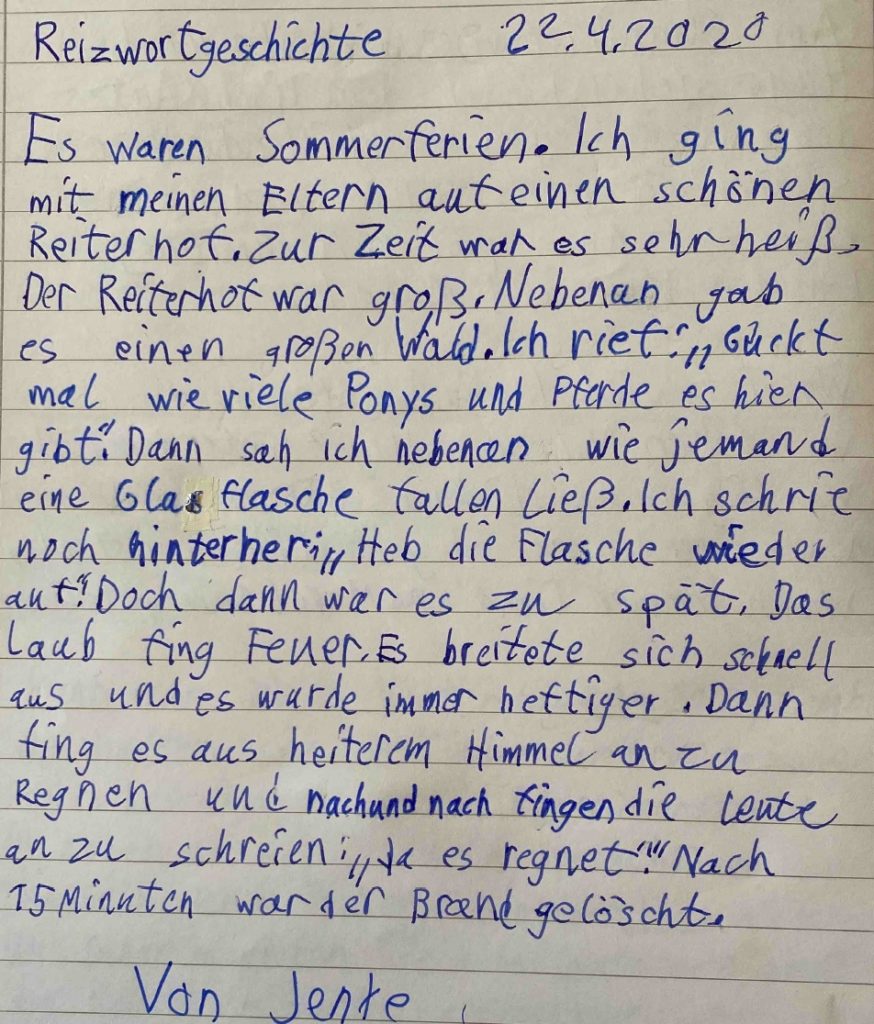 Reizwortgeschichte 22.4.2020
Es waren Sommerferien. Ich ging
mit meinen Eltern auf einen schönen
Reiterhof. Zur Zeit war es sehr heiß.
Der Reiterhof war groß. Nebenan gab
es einen großen Wald. Ich rief: „Guckt
mal wie viele Ponys und Pferde es hier
gibt!" Dann sah ich nebenan wie jemand
eine Glasflasche fallen ließ. Ich schrie
noch hinterher: „Heb die Flasche wieder
auf!" Doch dann war es zu spät. Das
Laub fing Feuer. Es breitete sich schnell
aus und es wurde immer heftiger. Dann
fing es aus heiterem Himmel an zu
Regnen und nach und nach fingen die Leute
an zu schreien: „Ja es regnet!!!" Nach
15 Minuten war der Brand gelöscht.
Von Jente